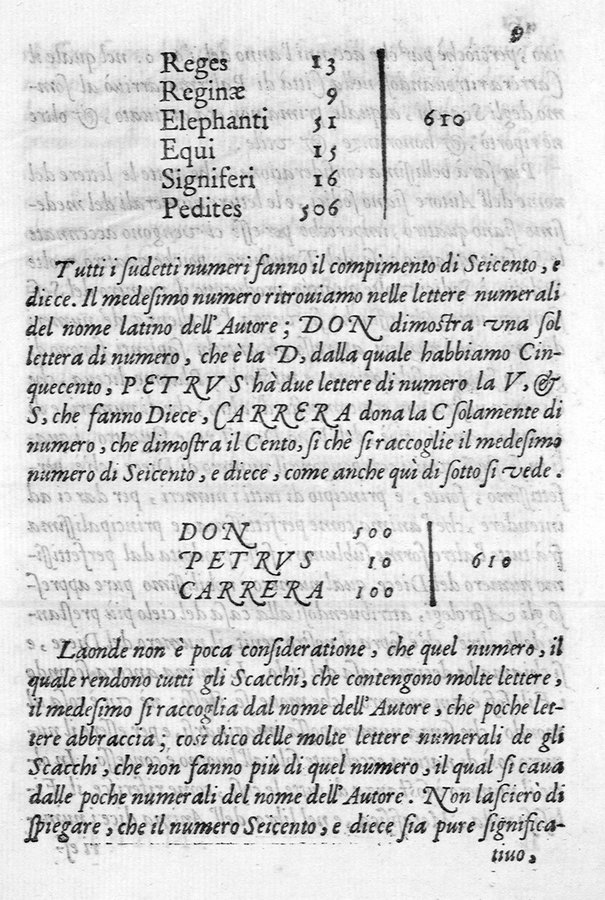 9
Reges 13
Reginæ 9
Elephanti 51 610
Equi 15
Signiferi 16
Pedites 506
Tutti i sudetti numeri fanno il compimento di Seicento, e
diece. Il medesimo numero ritrouiamo nelle lettere numerali
del nome latino dell'Autore; DON dimostra vna sol
lettera di numero, che è la D, dalla quale habbiamo Cin-
quecento, PETRVS hà due lettere di numero la V, &
S, che fanno Diece, CARRERA dona la C solamente di
numero, che dimostra il Cento, si chè si raccoglie il medesimo
numero di Seicento, e diece, come anche quì di sotto si vede.
DON 500
PETRVS 10 610
CARRERA 100
Laonde non è poca consideratione, che quel numero, il
quale rendono tutti gli Scacchi, che contengono molte lettere,
il medesimo si raccoglia dal nome dell'Autore, che poche let-
tere abbraccia; così dico delle molte lettere numerali de gli
Scacchi, che non fanno più di quel numero, il qual si caua
dalle poche numerali del nome dell'Autore. Non lascierò di
spiegare, che il numero Seicento, e diece sia pure significa-
tiuo,